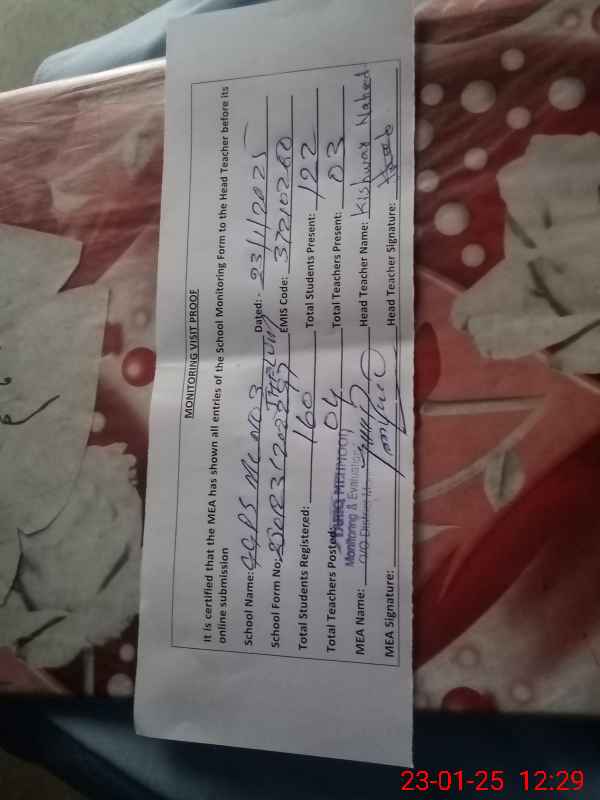 MONITORING VISIT PROOF
It is certified that the MEA has shown all entries of the School Monitoring Form to the Head Teacher before its
online submission
School Name: GGPS MC NO 3 Jhelum Dated:- 23/1/2025
School Form No: EMIS Code: 37210260
Total Students Registered: 160 Total Students Present: 122
Total Teachers Posted: 04 Total Teachers Present: 03
Monitoring & Evaluation
MEA Name: Head Teacher Name: Kishwar Naheed
MEA Signature: Head Teacher Signature:
23-01-25 12:29